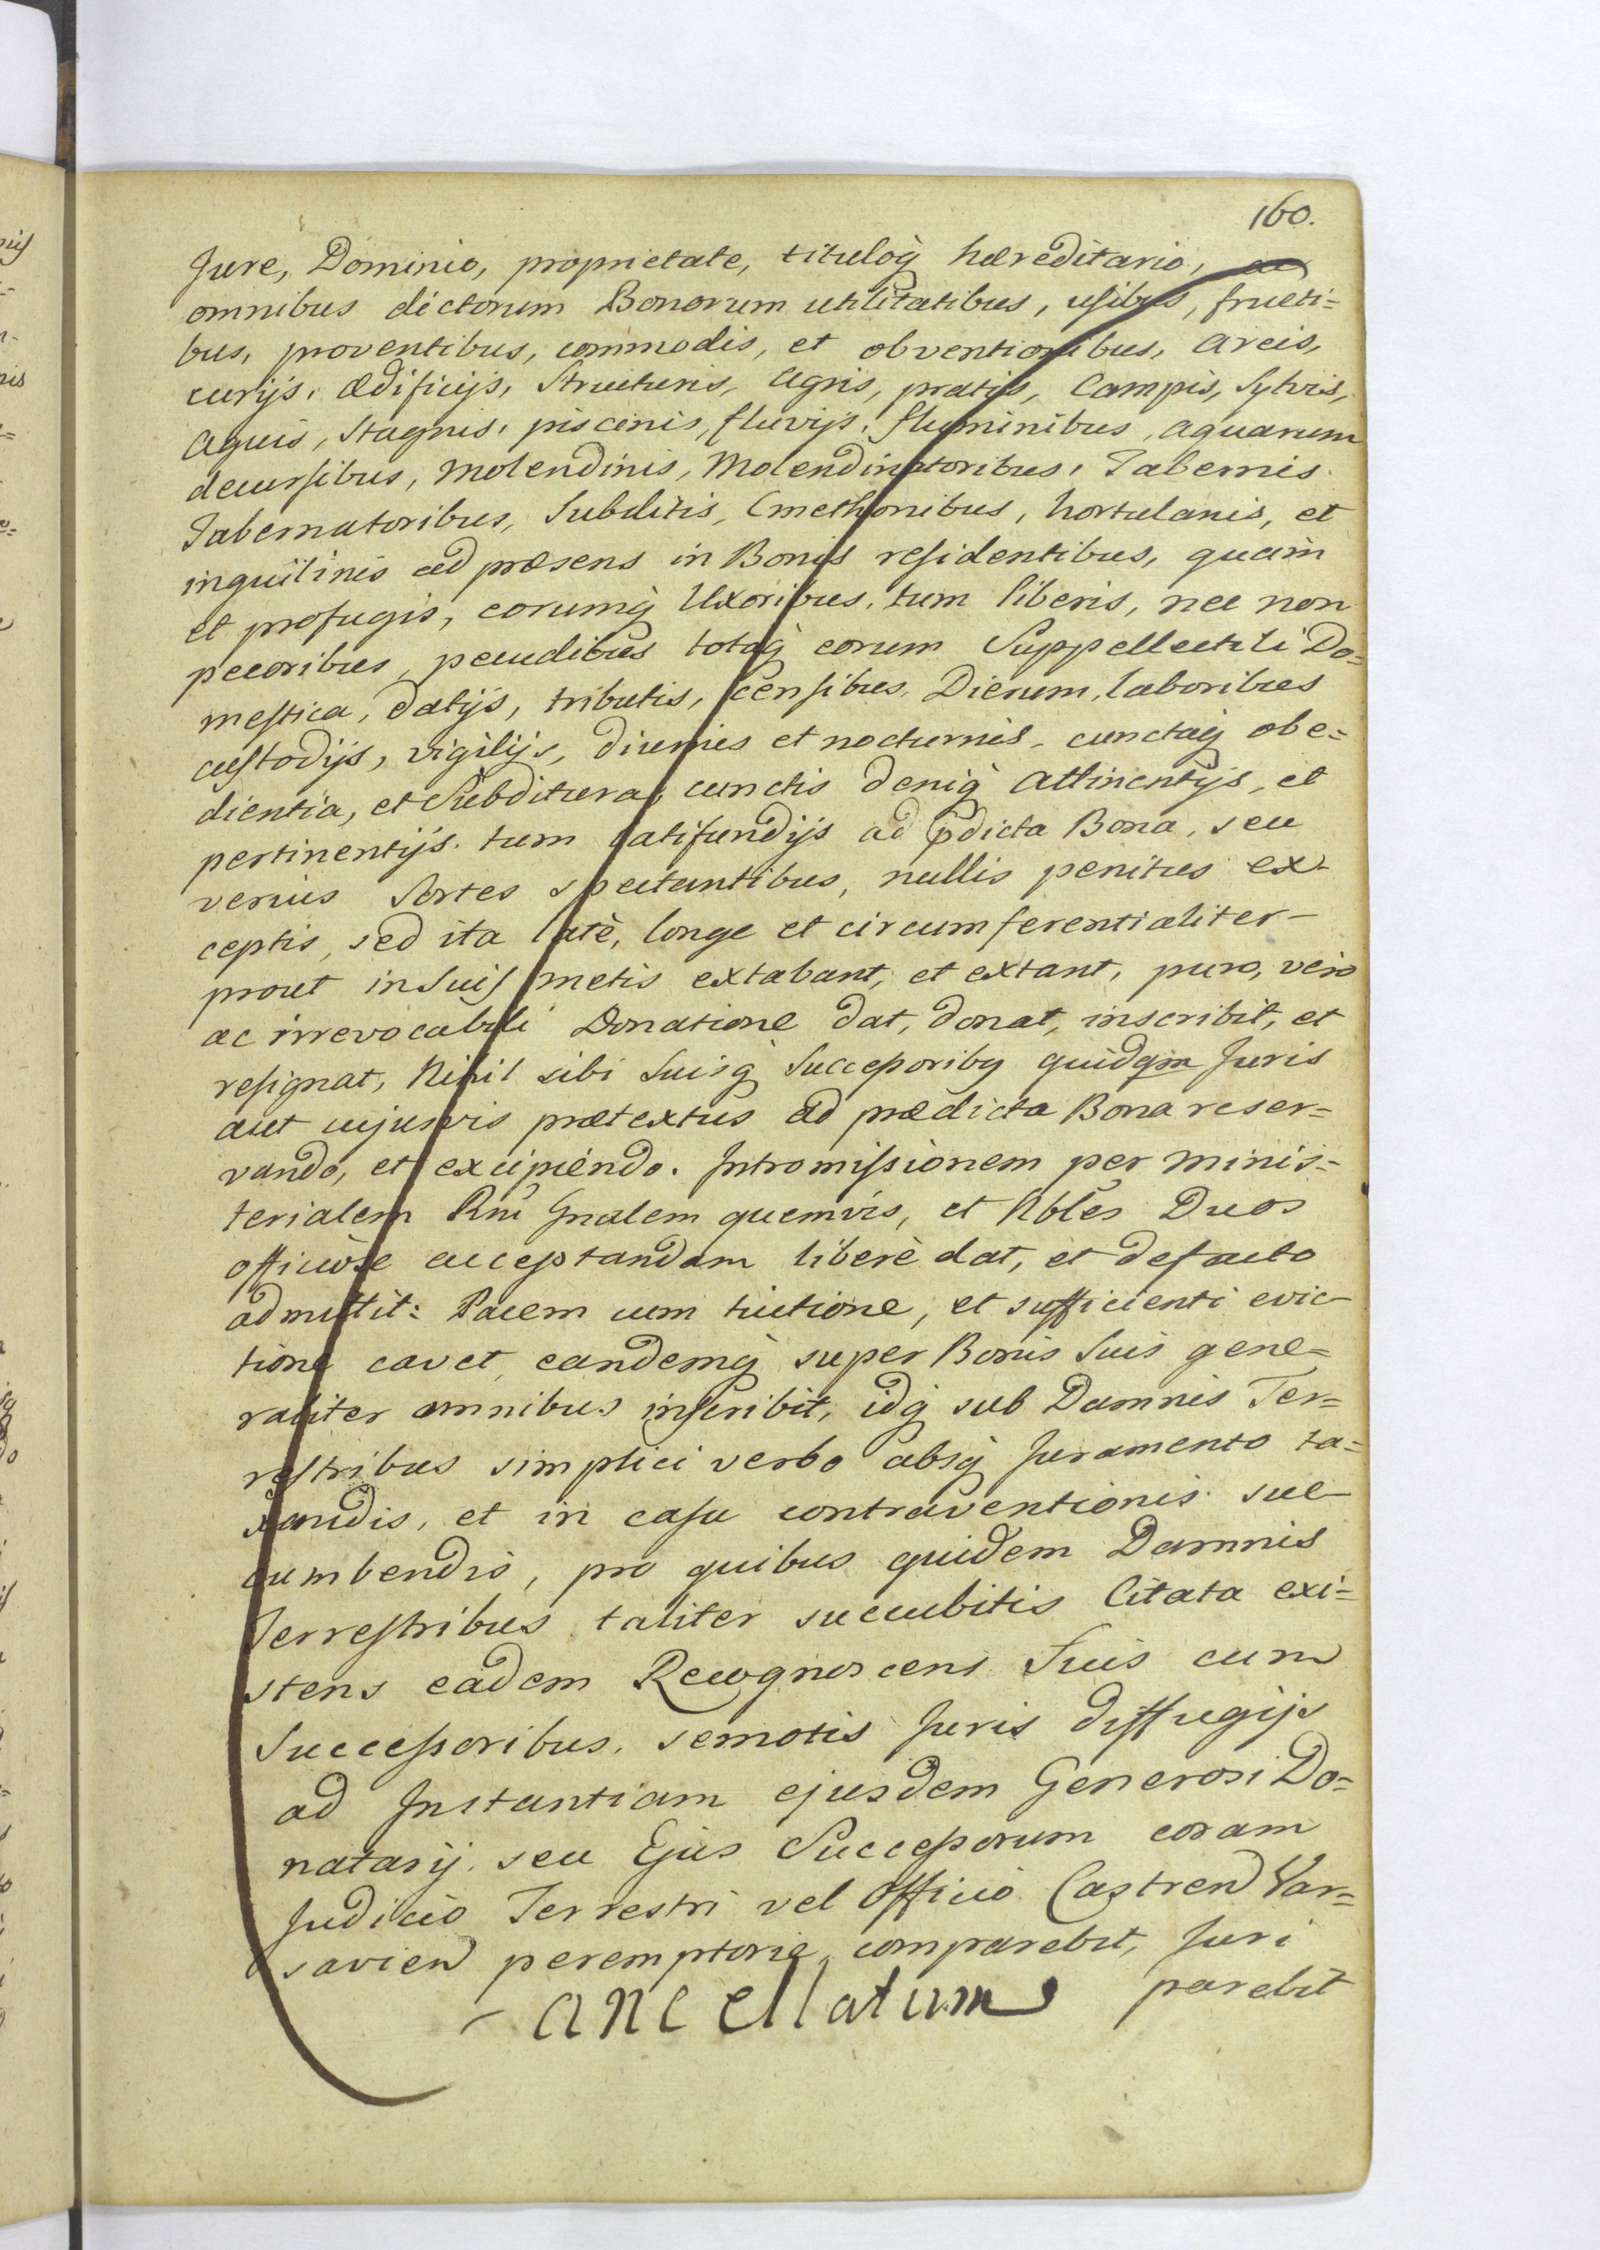 160.
Jure, Dominio, proprietate, tituloq̀ hæreditario, ac
omnibus dictorum Bonorum utilitatibus, usibus, fructi=
bus, proventibus, commodis, et obventionibus, areis,
curijs, ædificijs, Structuris, Agris, pratis, Campis, Sylvis,
Aquis, Stagnis, piscinis, fluvijs, fluminibus, aquarum
decursibus, Molendinis, Molendinatoribus, Tabernis
Tabernatoribus, Subditis, Cmethonibus, hortulanis, et
inquilinis ad præsens in Bonis residentibus, quàm
et profugis, eorumq̀ Uxoribus, tum liberis, nec non
pecoribus, pecudibus totaq̀ eorum Suppellectili Do=
mestica, datijs, tributis, censibus, Dierum, laboribus
custodijs, vigilijs, diurnis et nocturnis, cunctaq̀ obe=
dientia, et Subditura, cunctis deniq̀ Attinentijs, et
pertinentijs, tum latifundijs ad p̃dicta Bona, seu
verius Sortes spectantibus, nullis penitus ex-
ceptis, sed ita latè, longe et circumferentialiter-
prout in Suis metis extabant, et extant, puro, vero
ac irrevocabili Donatione dat, donat, inscribit, et
resignat, Nihil sibi Suisq̀ Successoriby quidqm Juris
aut cujusvis prætextus ad prædicta Bona reser=
vando, et excipiendo. Intromissionem per Minis=
terialem Rni Gnalem quemvis, et Nbles Duos
officiose acceptandam liberè dat, et defacto
admittit: Pacem cum tuitione, et sufficienti evic-
tione cavet, eandemq̀ super Bonis Suis gene=
raliter omnibus inscribit, idq̀ sub Damnis Ter=
restribus simplici verbo absq̀ Juramento ta=
xandis, et in casu contraventionis suc-
cumbendis, pro quibus quidem Damnis
Terrestribus taliter succubitis Citata exi=
stens eadem Recognoscens Suis cum
Successoribus, semotis Juris diffugijs
ad Instantiam ejusdem Generosi Do=
natarij, seu Ejus Successorum coram
Judicio Terrestri vel Officio Castren Var=
savien peremptorie comparebit, Juri
parebit
Cancellatum